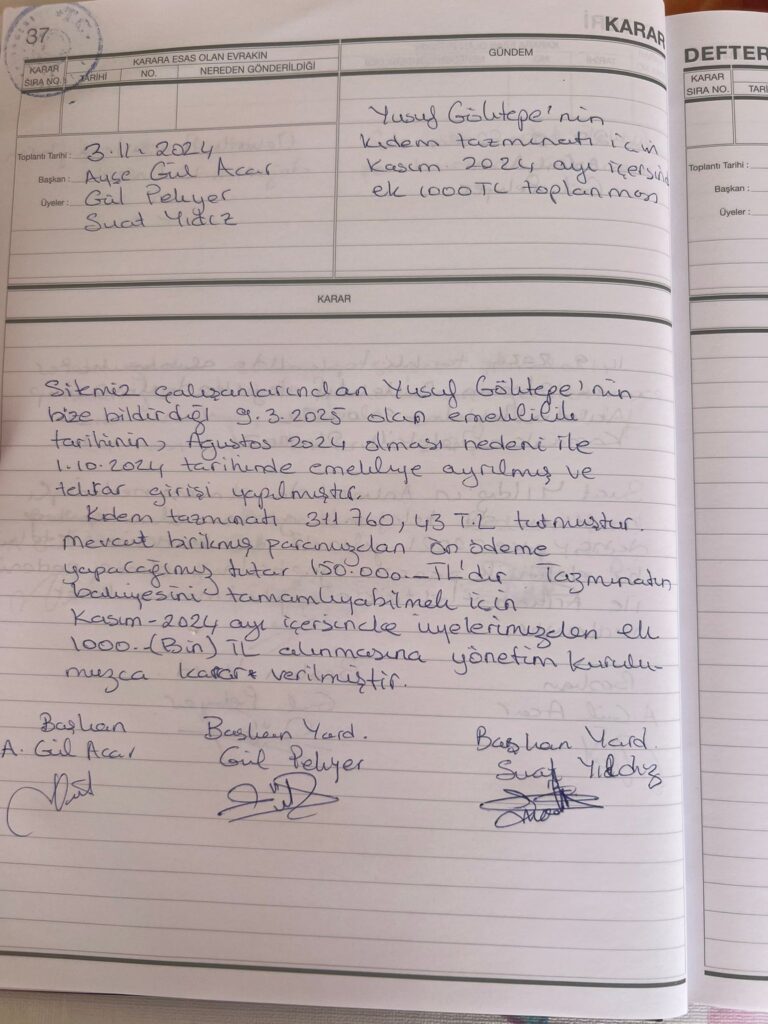 37
KARAR
DEFTER
KARAR SIRA NO.
KARARA ESAS OLAN EVRAKIN
TARİHİ
NO.
NEREDEN GÖNDERİLDİĞİ
GÜNDEM
KARAR SIRA NO.
TARİ
Toplantı Tarihi : 3.11.2024
Başkan : Ayşe Gül Acar
Üyeler : Gül Pekyer
Suat Yıldız
Yusuf Göktepe'nin
kıdem tazminatı için
Kasım 2024 ayı içersinde
ek 1000 TL toplanması
Toplantı Tarihi :
Başkan :
Üyeler :
KARAR
Sitemiz çalışanlarından Yusuf Göktepe'nin
bize bildirdiği 9.3.2025 olan emeklilik
tarihinin, Ağustos 2024 olması nedeni ile
1.10.2024 tarihinde emekliye ayrılmış ve
tekrar girişi yapılmıştır.
Kıdem tazminatı 311760,43 T.L tutmuştur.
mevcut birikmiş paramızdan ön ödeme
yapacağımız tutar 150.000.-TL'dir Tazminatın
bakiyesini tamamlıyabilmek için
Kasım-2024 ayı içersinde üyelerimizden ek
1000.-(Bin) TL alınmasına yönetim kurulu-
muzca karar verilmiştir.
Başkan
A. Gül Acar
Başkan Yard.
Gül Pekyer
Başkan Yard.
Suat Yıldız